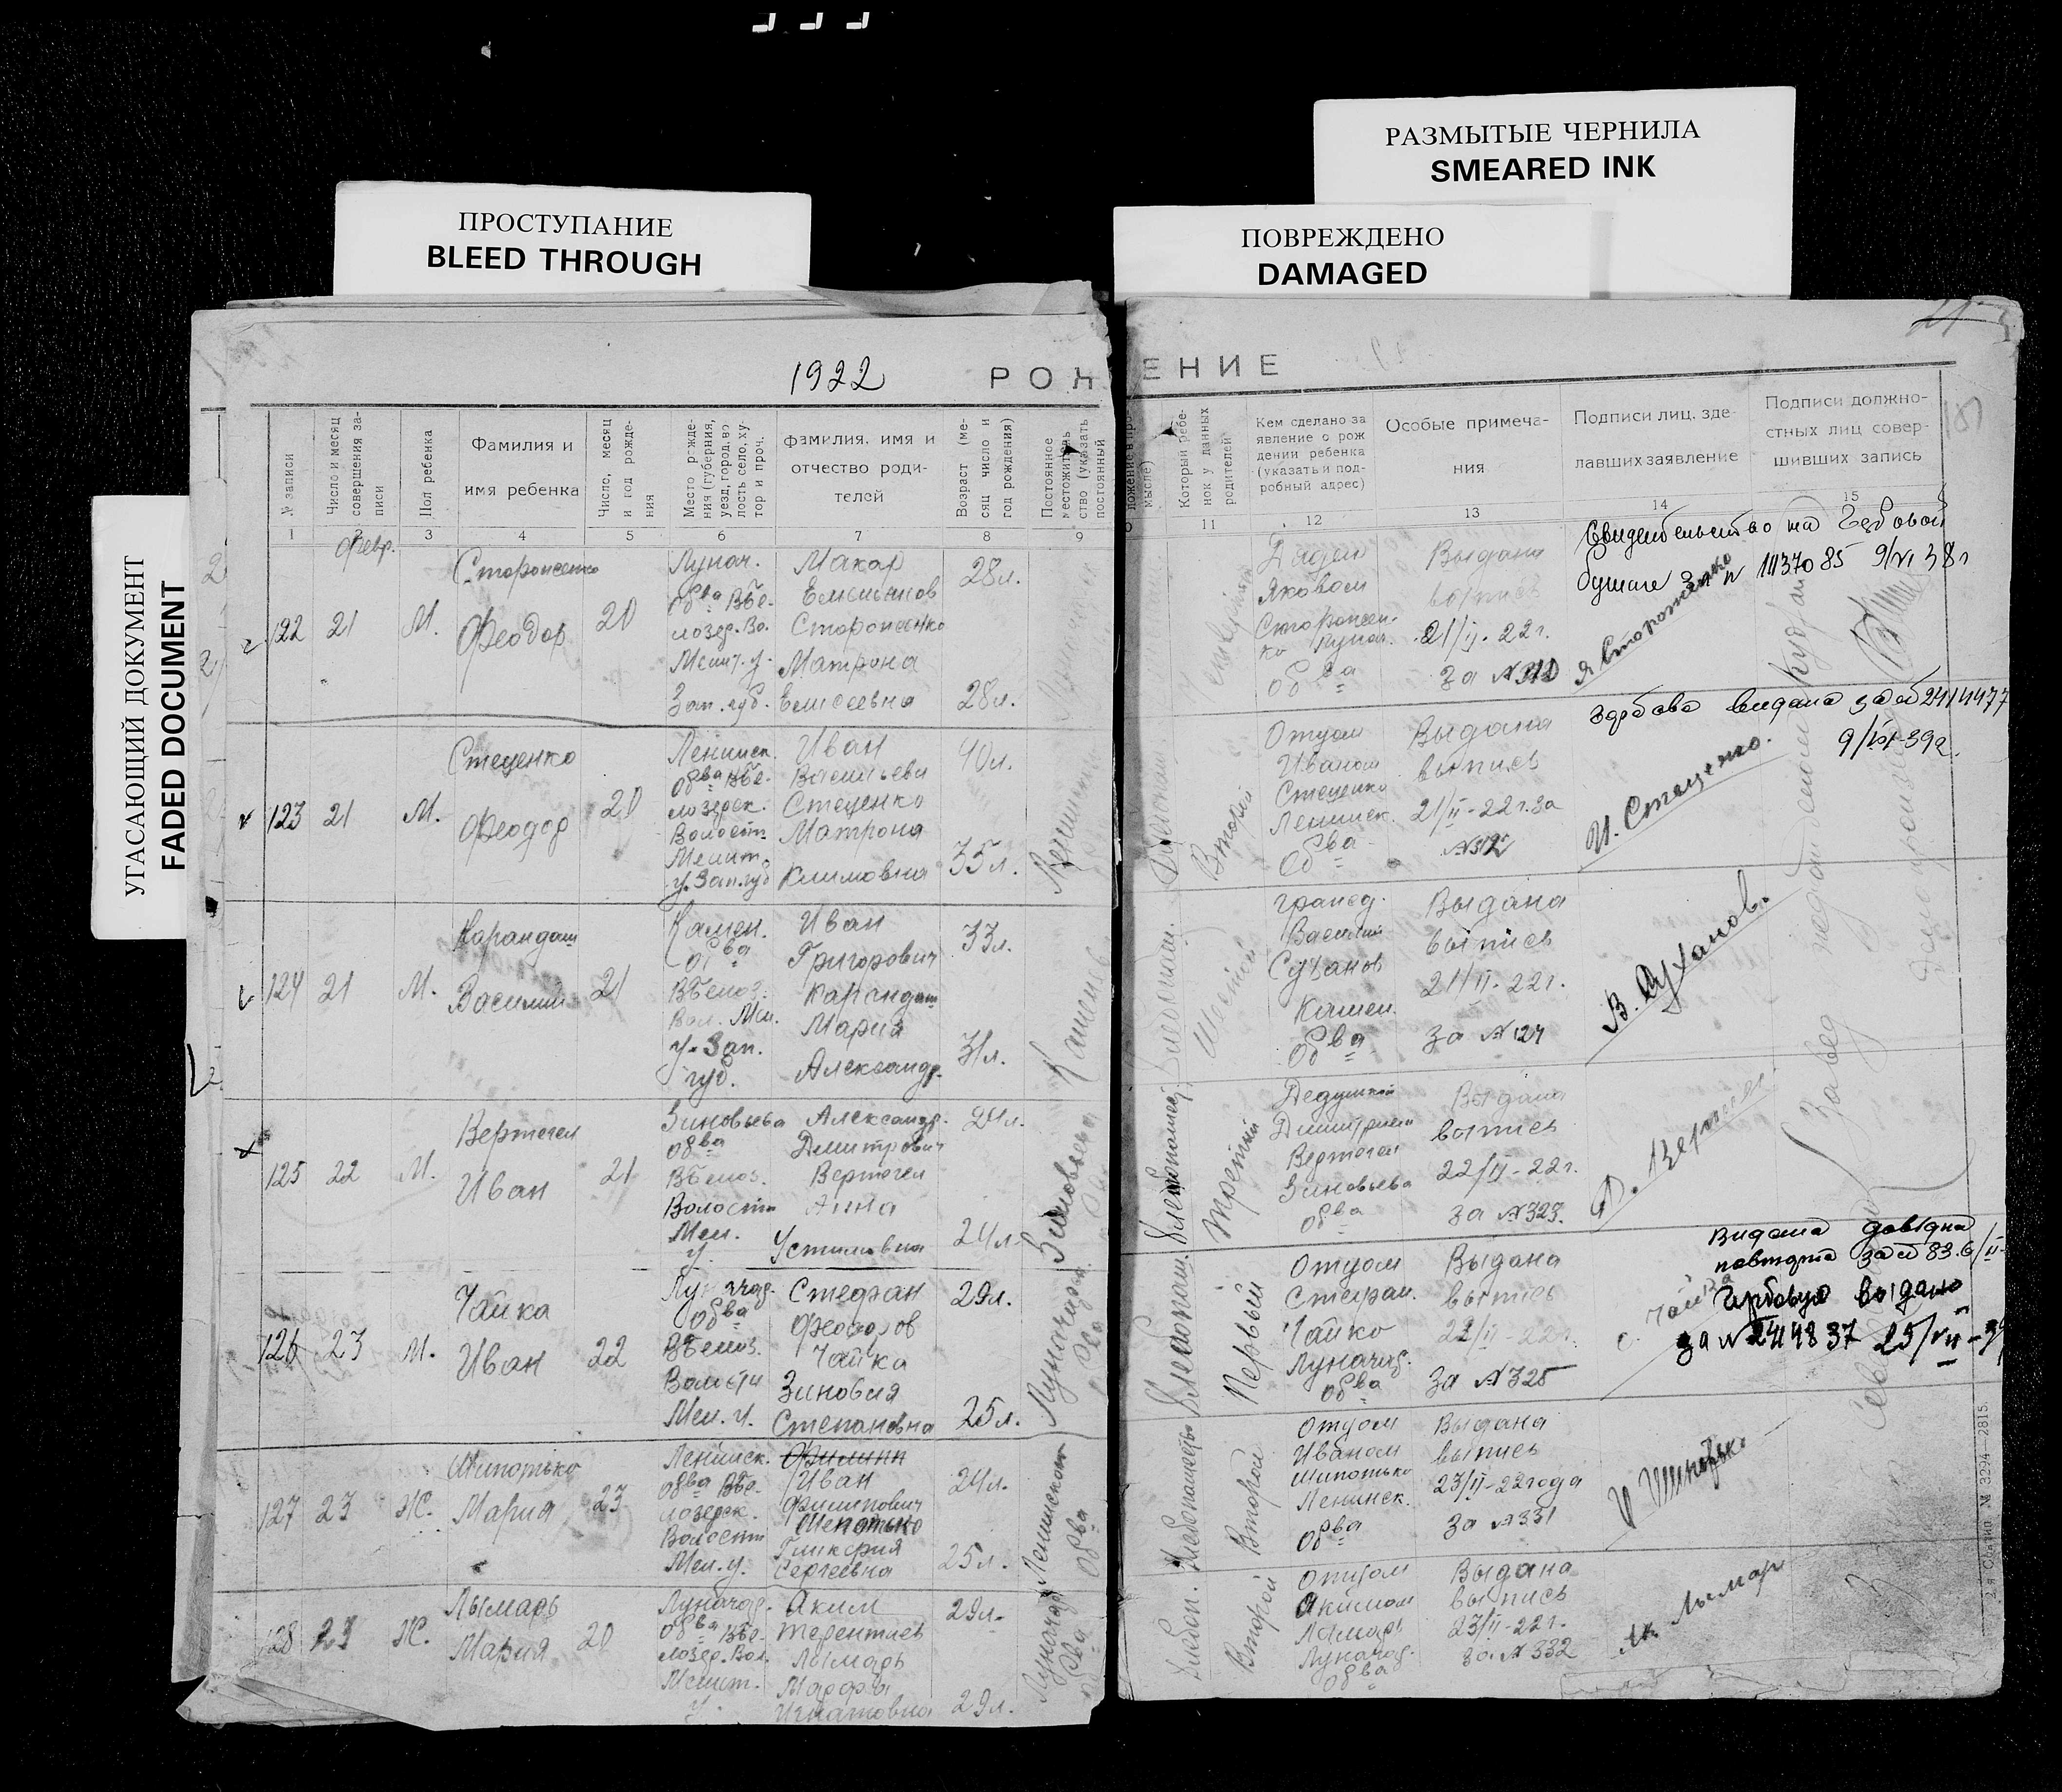 РАЗМЫТЫЕ ЧЕРНИЛА
SMEARED INK
ПРОСТУПАНИЕ
BLEED THROUGH
ПОВРЕЖДЕНО
DAMAGED
УГАСАЮЩИЙ ДОКУМЕНТ
FADED DOCUMENT
1922
РОЖДЕНИЕ
№ записи
Число и месяц
совершения за-
писи
Пол ребенка
Фамилия и
имя ребенка
Число, месяц
и год рожде-
ния
Место рожде-
ния (губерния,
уезд, город, во
лость село, ху-
тор и проч.
фамилия, имя и
отчество роди-
телей
Возраст (ме-
сяц число и
год рождения)
Постоянное
местожитель
ство (указать
постоянный
Который ребе-
нок у данных
родителей
Кем сделано за
явление о рож
дении ребенка
(указать и под-
робный адрес)
Особые примеча-
ния
Подписи лиц, зде-
лавших заявление
Подписи должно-
стных лиц совер-
шивших запись
1 2 3 4 5 6 7 8 9 11 12 13 14 15
февр.
122
21
М.
Стороженко
Феодор
20
Лунач.
Обва Вбе-
лозер. Во.
Мелит. у.
Зап. губ.
Макар
Емельянов
Стороженко
Матрона
Елисеевна
28л.
28л.
Дядей
Яковом
Сторожен-
ко Лунач.
Обва
Выдана
выпись
21/II-22г.
за №310
Свидетельство на Гербовой
бумаге за № 1137085 9/VI 38г
Я Стороженко
123
21
М.
Стеценко
Феодор
20
Ленинск.
Обва Вбе-
лозерск.
Волост.
Мелит.
у. Зап. губ
Иван
Васильеви
Стеценко
Матрона
Климовна
40л.
35л.
Второй
Отцом
Иваном
Стеценко
Ленинск.
Обва
Выдана
выпись
21/II-22г. за
№312
И. Стеценко.
124
21
М.
Карандаш
Василий
21
Камен.
Обва
ВБелоз.
Вол. Мел.
у. Зап.
губ.
Иван
Григорович
Карандаш
Мария
Александр.
33л.
31л.
Шестой
гражд.
Василий
Суханов
Камен.
Обва
Выдана
выпись
21/II-22г.
В. Суханов.
125
22
М.
Вертегел
Иван
21
Зиновьева
Обва
ВБелоз.
Волости
Мел.
у.
Александр.
Дмитрович
Вертегел
Анна
Устимовна
24л.
24л.
Хлебопашец
Третий
Дедушкой
Дмитрием
Вертегел
Зиновьева
Обва
Выдана
выпись
22/II-22г.
за №323.
126
23
М.
Чайка
Иван
22
Луначар.
Обва
ВБелоз.
Волости
Мел. у.
Стефан
Феодоров
Чайка
Зиновия
Степановна
29л.
25л.
Хлебопаш.
Первый
Отцом
Стефан.
Чайко
Луначар.
Обва
Выдана
выпись
22/II-22г.
за №325
Гербовую выдано
за №244837 25/VII-39
127
23
Ж.
Шипотько
Мария
23
Ленинск.
Обва Вбе-
лозерск.
Волости
Мел. у.
Филипп
Иван
Филипович
Шепотько
Гликерия
Сергеевна
24л.
25л.
Ленинское
Обва
Хлебопашец
Второй
Отцом
Иваном
Шипотько
Ленинск.
Обва
Выдана
выпись
23/II-22года
за №331
128
23
Ж.
Лымарь
Мария
20
Луначар.
Обва Вбе-
лозер. Вол.
Мелит.
у.
Аким
Терентиев
Лымарь
Марфа
Игнатовна
29л.
29л.
Хлебоп.
Второй
Отцом
Акимом
Лымарь
Луначар.
Обва
Выдана
выпись
23/II-22г.
за №332
Ак Лымар